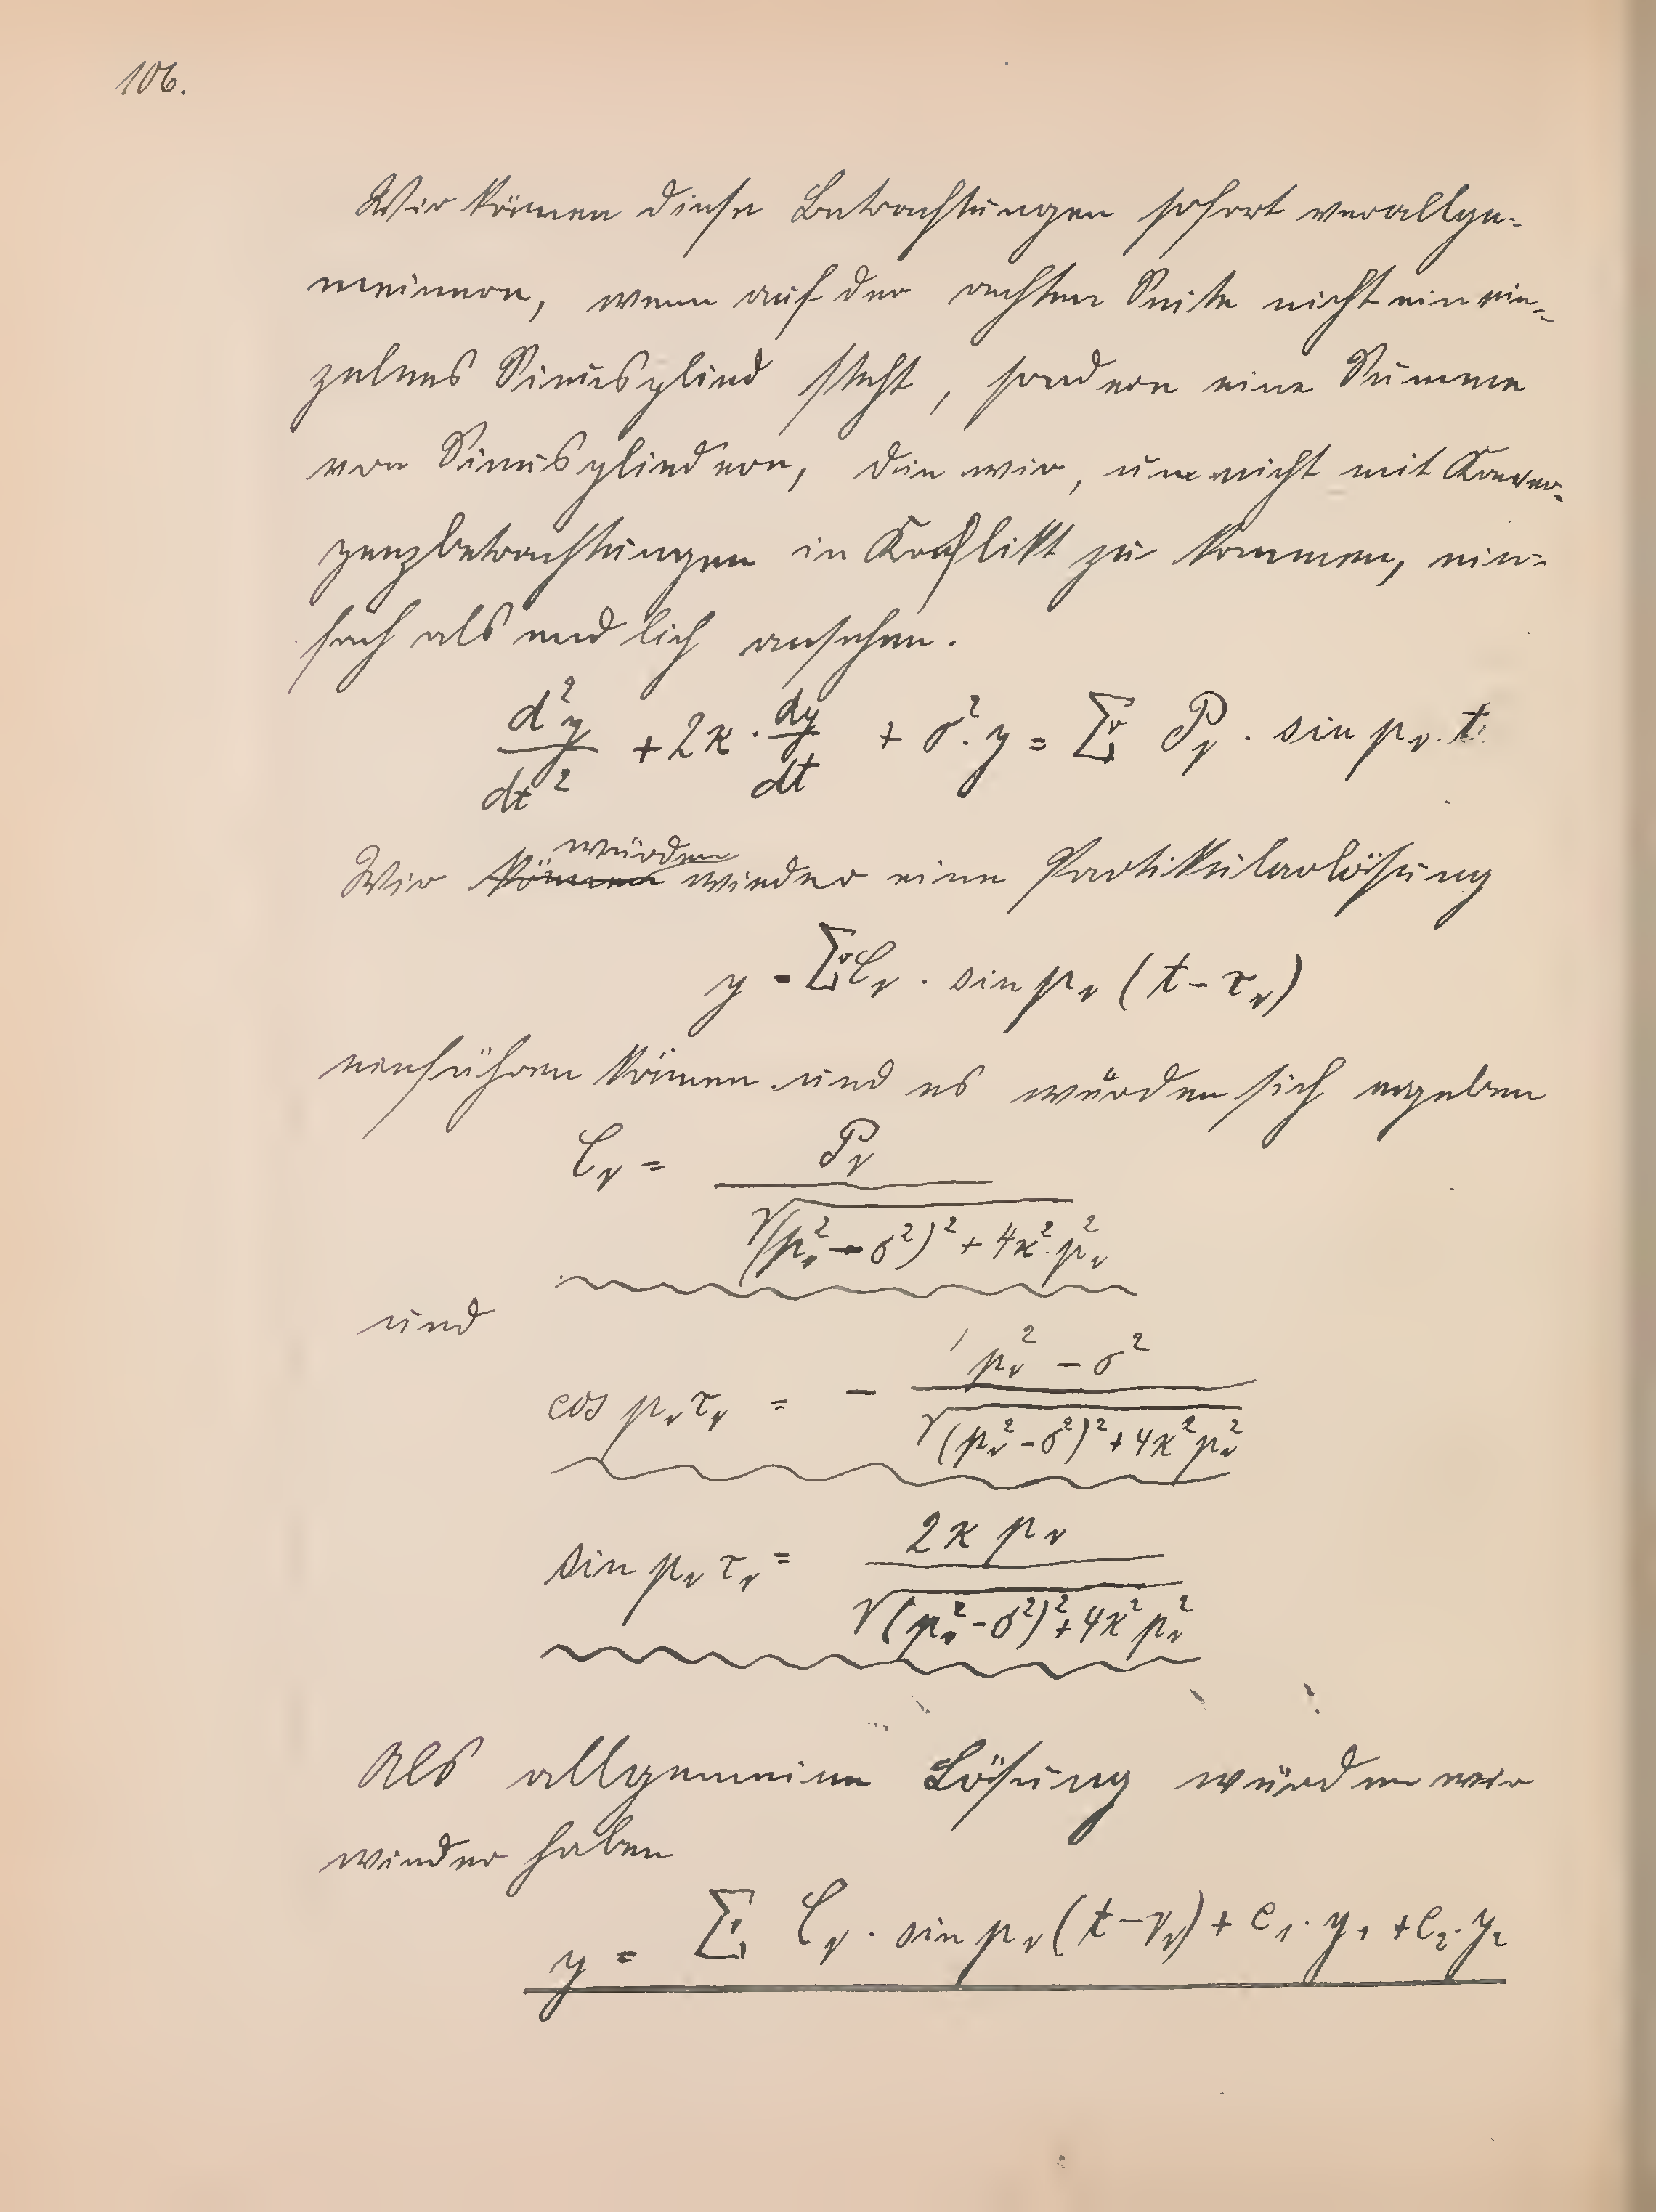 106.
Wir können diese Betrachtungen sofort verallge-
meinern, wenn auf der rechten Seite nicht ein ein-
zelnes Sinusglied steht, sondern eine Summe
von Sinusgliedern, die wir, um nicht mit Konver-
genzbetrachtungen in Konflikt zu kommen, ein-
fach als endlich ansehen.
d²y/dt² + 2κ · dy/dt + σ² · y = Σ P_ν · sin p_ν · t
würden
Wir ~~können~~ wieder eine Partikularlösung
y = Σ C_ν · sin p_ν (t - τ_ν)
einführen können und es würden sich ergeben
C_ν = P_ν / √((p_ν² - σ²)² + 4κ² · p_ν²)
und
cos p_ν τ_ν = - (p_ν² - σ²) / √((p_ν² - σ²)² + 4κ² p_ν²)
sin p_ν τ_ν = 2κ p_ν / √((p_ν² - σ²)² + 4κ² p_ν²)
Als allgemeine Lösung würden wir
wieder haben
y = Σ C_ν · sin p_ν (t - τ_ν) + c₁ · y₁ + c₂ · y₂